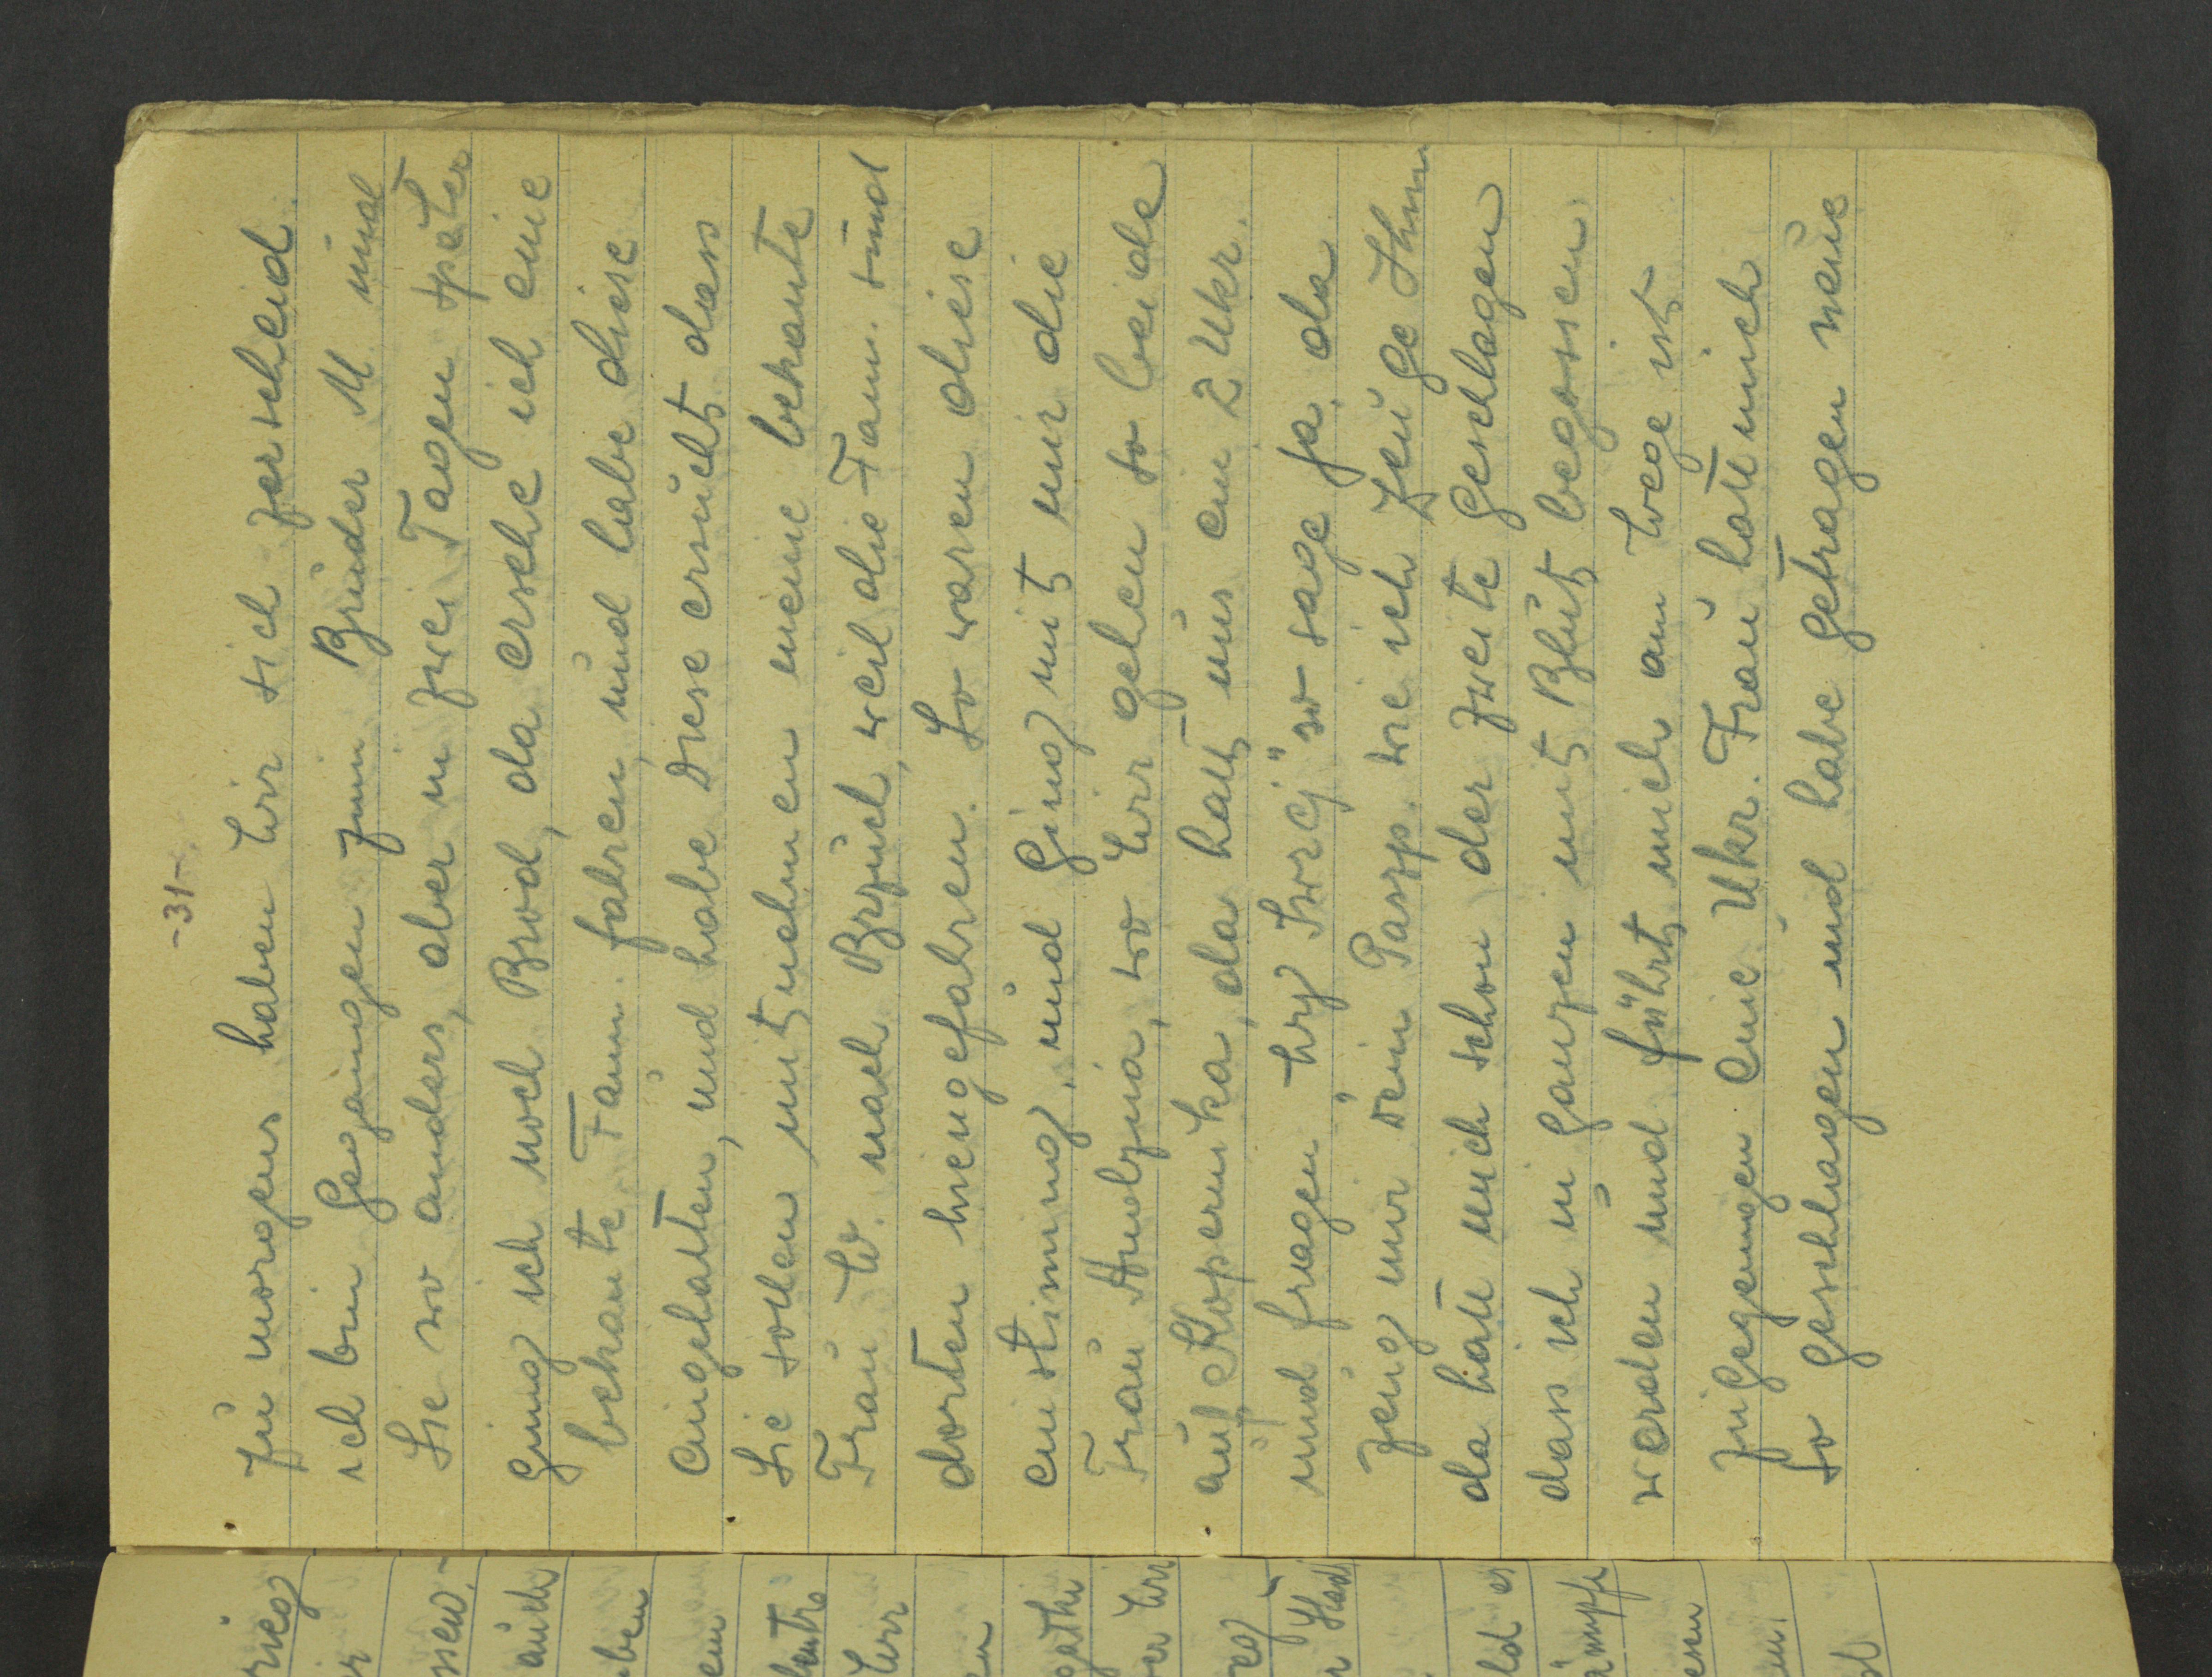 -31-
Zu morgens haben Wir sich zerscheid.
ich bin Gegangen zum Bruder M und
Sie wo anders, aber in zwei Tagen später
ging ich noch Brod, da ersehe ich eine
bekante Fam. fahren, und habe diese
Angehalten, und habe Diese ersucht dass
Sie sollen mitnehmen meine bekante
Frau W. nach Brzuch, weil die Fam. sind
dorten hiengefahren. So waren diese
einstimmig, und Ging mit mir die
Frau, wo Wir gehen so beide
auf Kopernika, da halt uns ein 2 Ukr.
und fragen "Wy Jwrej" so sage Ja, da
zeug mir dein Paszp. wie ich Zeuge Ihm
da hate mich schon der zweite Geschlagen
dass ich in ganzen mit Blut begossen
worden und führt mich am Wege ist
zugegengen Eine Ukr. Frau hate mich
so Geschlagen und habe getragen neue
rieg
er
auch
ben
em
Wir
en
er Wir